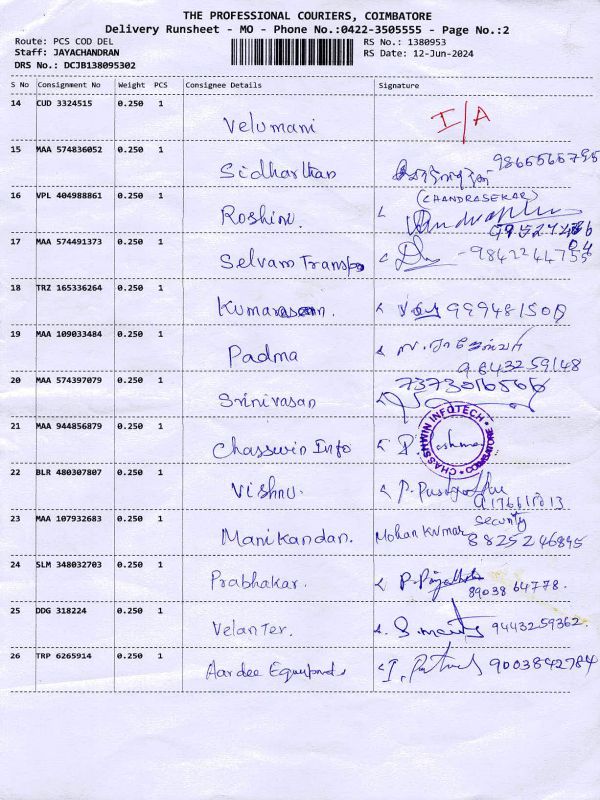 THE PROFESSIONAL COURIERS, COIMBATORE
Delivery Runsheet - MO - Phone No.:0422-3505555 - Page No.:2
Route: PCS COD DEL
RS No.: 1380953
Staff: JAYACHANDRAN
RS Date: 12-Jun-2024
DRS No.: DCJB138095302
S No Consignment No Weight PCS Consignee Details Signature
14 CUD 3324515 0.250 1 Velumani I/A
15 MAA 574836052 0.250 1 Sidharthan
16 VPL 404988861 0.250 1 Roshini (CHANDRASEKAR)
17 MAA 574491373 0.250 1 Selvam Transpo 9842244755
18 TRZ 165336264 0.250 1 Kumarasan.
19 MAA 109033484 0.250 1 Padma
9843259148
20 MAA 574397079 0.250 1 Srinivasan 7373016566
21 MAA 944856879 0.250 1 Chasswin Info
CHASSHWIN INFOTECH
COIMBATORE
22 BLR 480307807 0.250 1 Vishnu.
23 MAA 107932683 0.250 1 Manikandan. Mohan Kumar Security
8825246895
24 SLM 348032703 0.250 1 Prabhakar.
8903864778.
25 DDG 318224 0.250 1 Velanter. 9443259362.
26 TRP 6265914 0.250 1 Aardee Equipments 9003842784